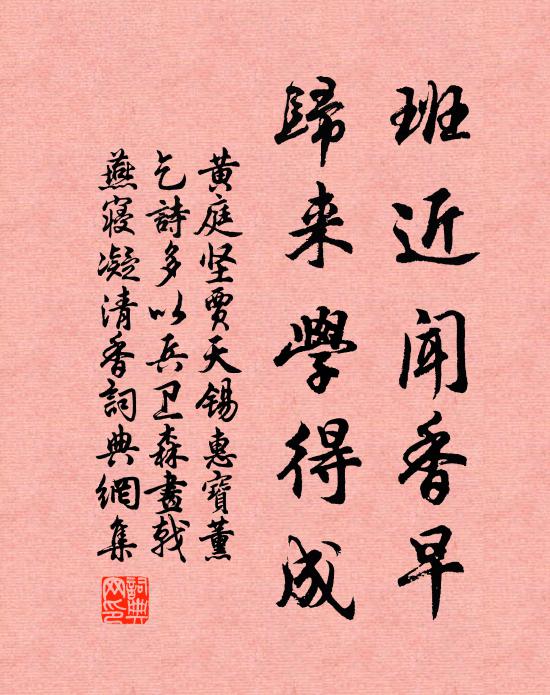 班近闻香早
歸来學得成
黄庭坚賈天锡惠寶薰
乞詩多以兵卫森畫戟
燕寝凝清香詞典網集
詞典网印